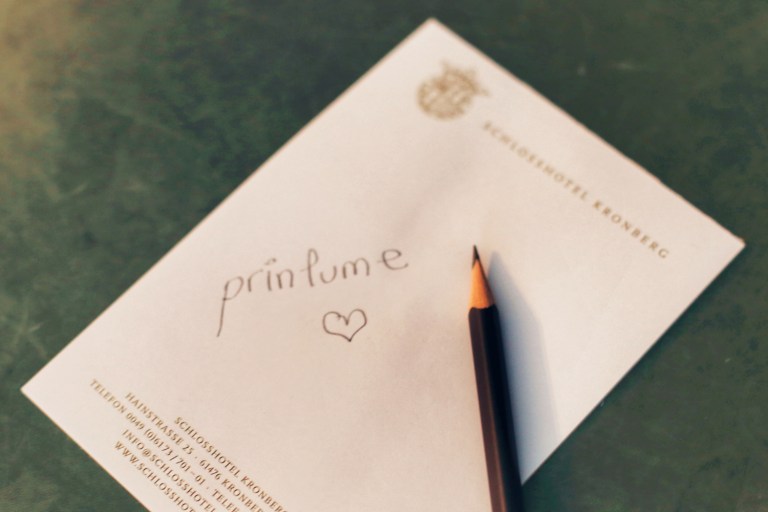 SCHLOSSHOTEL KRONBERG
printume
SCHLOSSHOTEL KRONBERG
HAINSTRASSE 25 · 61476 KRONBERG
TELEFON 0049 (0)6173/701-01 ·
INFO@SCHLOSSHOTEL
WWW.SCHLOSSHOT